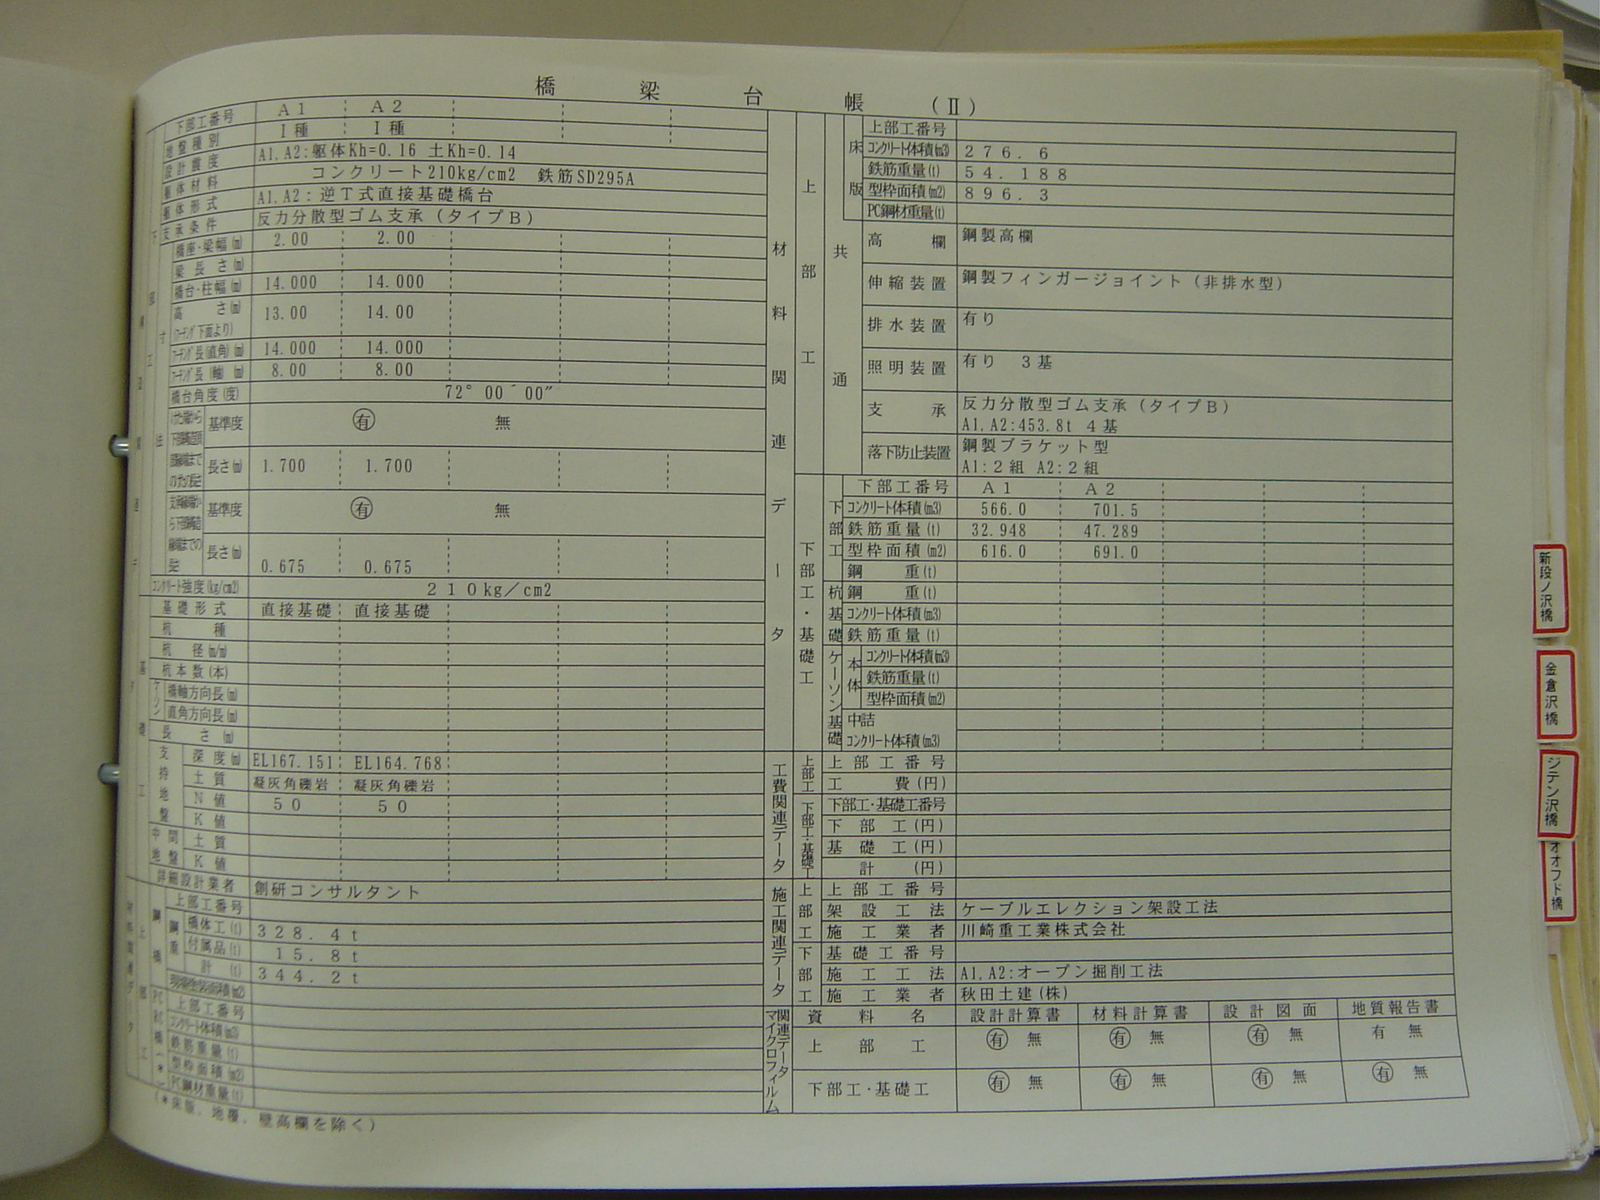 橋梁台帳(Ⅱ)
下部工番号 A1 A2
地盤種別 Ⅰ種 Ⅰ種
設計震度 A1,A2:躯体Kh=0.16 土Kh=0.14
躯体材料 コンクリート210kg/cm2 鉄筋SD295A
躯体形式 A1,A2:逆T式直接基礎橋台
支承条件 反力分散型ゴム支承(タイプB)
橋座・梁幅(m) 2.00 2.00
梁長さ(m)
橋台・柱幅(m) 14.000 14.000
高さ(m) 13.00 14.00
(フーチング下面より)
フーチング長(直角)(m) 14.000 14.000
フーチング長(軸)(m) 8.00 8.00
橋台角度(度) 72°00′00″
基準度 有 無
長さ(m) 1.700 1.700
基準度 有 無
長さ(m) 0.675 0.675
コンクリート強度(kg/cm2) 210kg/cm2
基礎形式 直接基礎 直接基礎
杭種
杭径(m/m)
杭本数(本)
橋軸方向長(m)
直角方向長(m)
長さ(m)
支持地盤
深度(m) EL167.151 EL164.768
土質 凝灰角礫岩 凝灰角礫岩
N値 50 50
K値
中間地盤
土質
K値
詳細設計業者 創研コンサルタント
上部工番号
鋼橋 鋼重
橋体工(t) 328.4t
付属品(t) 15.8t
計(t) 344.2t
上部工番号
コンクリート体積(m3)
鉄筋重量(t)
型枠面積(m2)
PC鋼材重量(t)
(*床版、地覆、壁高欄を除く)
材料関連データ
上部工
共通
床版
上部工番号
コンクリート体積(m3) 276.6
鉄筋重量(t) 54.188
型枠面積(m2) 896.3
PC鋼材重量(t)
高欄 鋼製高欄
伸縮装置 鋼製フィンガージョイント(非排水型)
排水装置 有り
照明装置 有り 3基
支承 反力分散型ゴム支承(タイプB)
A1,A2:453.8t 4基
落下防止装置 鋼製ブラケット型
A1:2組 A2:2組
下部工・基礎工
下部工番号 A1 A2
下部工
コンクリート体積(m3) 566.0 701.5
鉄筋重量(t) 32.948 47.289
型枠面積(m2) 616.0 691.0
鋼重(t)
杭基礎
鋼重(t)
コンクリート体積(m3)
鉄筋重量(t)
ケーソン基礎
本体
コンクリート体積(m3)
鉄筋重量(t)
型枠面積(m2)
中詰
コンクリート体積(m3)
工費関連データ
上部工
上部工番号
工費(円)
下部工・基礎工
下部工・基礎工番号
下部工(円)
基礎工(円)
計(円)
施工関連データ
上部工
上部工番号
架設工法 ケーブルエレクション架設工法
施工業者 川崎重工業株式会社
下部工
基礎工番号
施工工法 A1,A2:オープン掘削工法
施工業者 秋田土建(株)
関連データマイクロフィルム
資料名 設計計算書 材料計算書 設計図面 地質報告書
上部工 有 無 有 無 有 無 有 無
下部工・基礎工 有 無 有 無 有 無 有 無
新段ノ沢橋
金倉沢橋
ジテン沢橋
オオフド橋